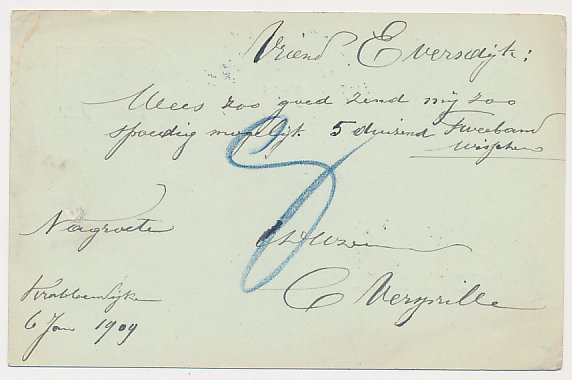 Vriend Eversdijk:
Wees zoo goed zend mij zoo
spoedig mogelijk 5 duizend Tweeband
wisschen
Na groete
C Verspille
Krabbendijke
6 Jan 1909